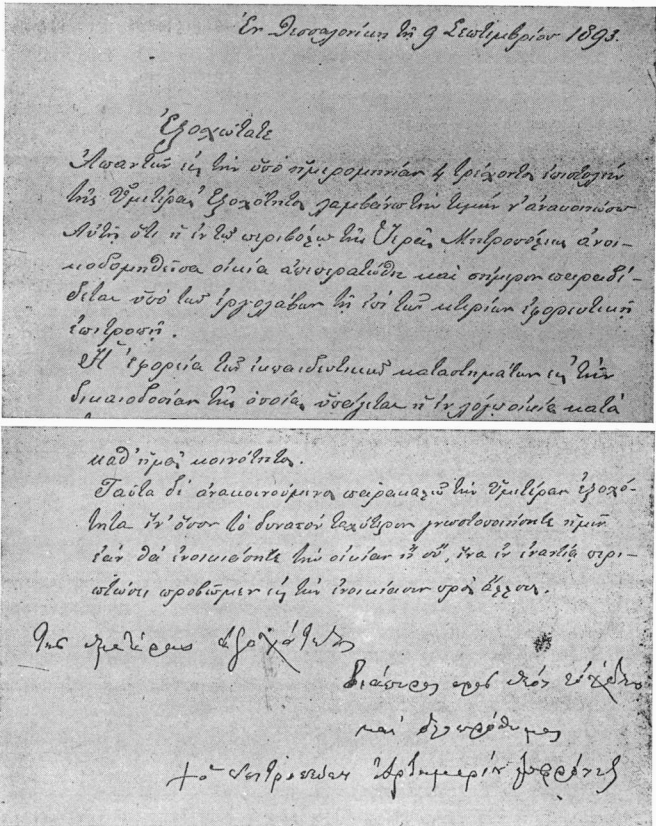 Ἐν Θεσσαλονίκῃ τῇ 9 Σεπτεμβρίου 1893.
Ἐξοχώτατε
Ἀπαντῶν εἰς τὴν ὑπὸ ἡμερομηνίαν 4 τρέχοντος ἐπιστολὴν
τῆς Ὑμετέρας Ἐξοχότητος λαμβάνω τὴν τιμὴν ν' ἀνακοινώσω
Αὐτῇ ὅτι ἡ ἐν τῷ περιβόλῳ τῆς Ἱερᾶς Μητροπόλεως ἀνοι-
κοδομηθεῖσα οἰκία ἀπεπερατώθη καὶ σήμερον παραδί-
δεται ὑπὸ τῶν ἐργολάβων τῇ ἐπὶ τῶν κτιρίων ἐφορευτικῇ
ἐπιτροπῇ.
Ἡ ἐφορεία τῶν ἐκπαιδευτικῶν καταστημάτων εἰς τὴν
δικαιοδοσίαν τῆς ὁποίας ὑπάγεται ἡ ἐν λόγῳ οἰκία κατὰ
καθ' ἡμᾶς κοινότητος.
Ταῦτα δι' ἀνακοινούμενος παρακαλῶ τὴν Ὑμετέραν ἐξοχό-
τητα ἵν' ὅσον τὸ δυνατὸν ταχύτερον γνωστοποιήσητε ἡμῖν
ἐὰν θὰ ἐνοικιάσητε τὴν οἰκίαν ἢ οὔ, ἵνα ἐν ἐναντίᾳ περι-
πτώσει προβῶμεν εἰς τὴν ἐνοικίασιν πρὸς ἄλλους.
τῆς ὑμετέρας ἐξοχότητος
διάπυρος πρὸς Θεὸν εὐχέτης
καὶ ὅλως πρόθυμος
† ὁ